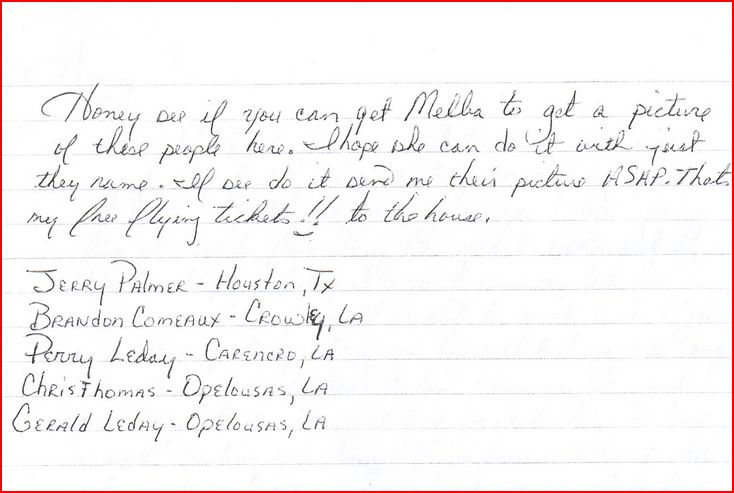 Honey see if you can get Melba to get a picture
of these people here. I hope she can do it with just
they name. If see do it send me their picture ASAP. Thats
my free flying tickets!! to the house.
Jerry Palmer - Houston, Tx
Brandon Comeaux - Crowley, LA
Perry Leday - Carencro, LA
Chris Thomas - Opelousas, LA
Gerald Leday - Opelousas, LA